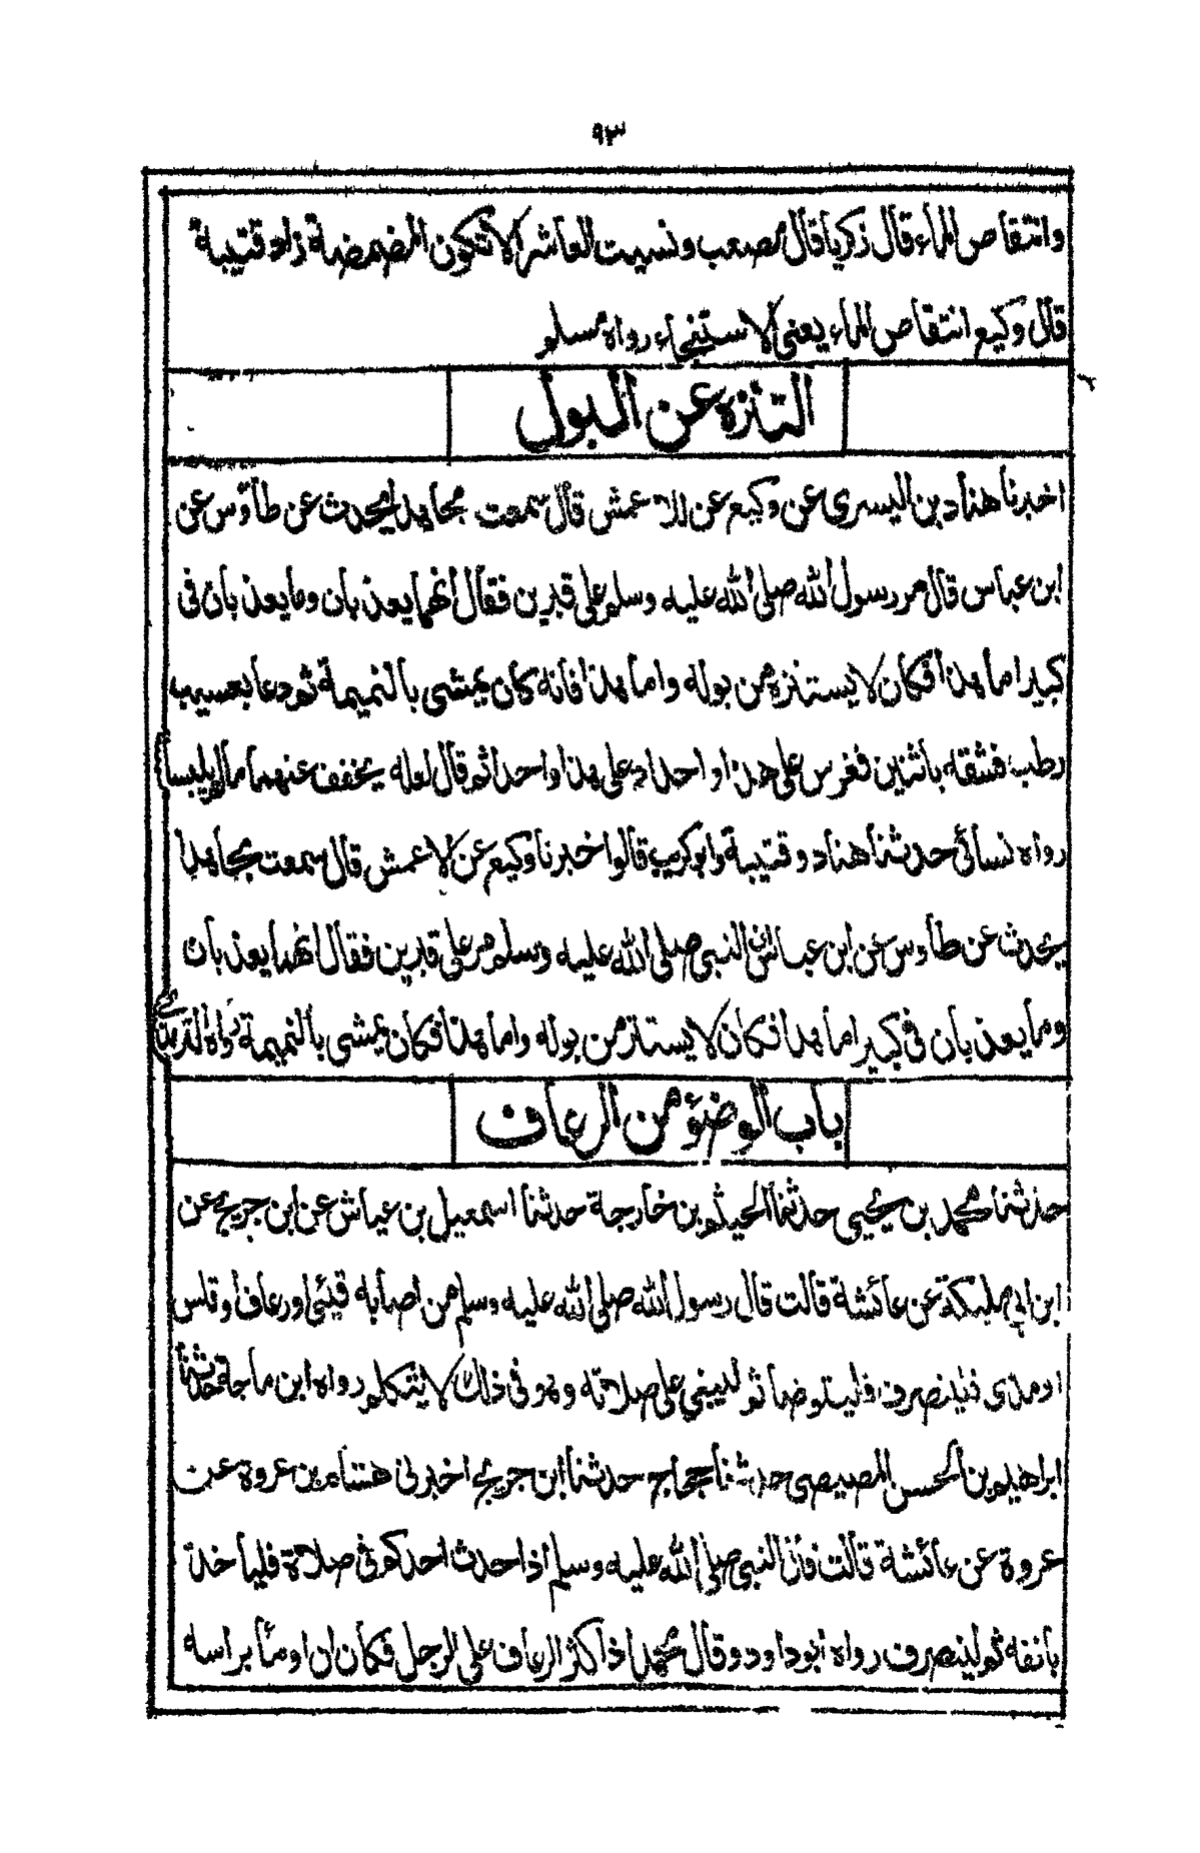 ٩٣
وانتقاص الماء قال زكريا قال مصعب ونسيت العاشر الا تكون المضمضة زاد قتيبة
قال وكيع انتقاص الماء يعني الاستنجاء رواه مسلم
التنزه عن البول
اخبرنا هناد بن السري عن وكيع عن الاعمش قال سمعت مجاهدا يحدث عن طاوس عن
ابن عباس قال مر رسول الله صلى الله عليه وسلم على قبرين فقال انهما يعذبان وما يعذبان في
كبير اما هذا فكان لا يستنزه من بوله واما هذا فانه كان يمشي بالنميمة ثم دعا بعسيب
رطب فشقه باثنين فغرس على هذا واحدا وعلى هذا واحدا ثم قال لعله يخفف عنهما ما لم ييبسا
رواه نسائي حدثنا هناد وقتيبة وابو كريب قالوا اخبرنا وكيع عن الاعمش قال سمعت مجاهدا
يحدث عن طاوس عن ابن عباس ان النبي صلى الله عليه وسلم مر على قبرين فقال انهما يعذبان
وما يعذبان في كبير اما هذا فكان لا يستنزه من بوله واما هذا فكان يمشي بالنميمة رواه الترمذي
باب الوضوء من الرعاف
حدثنا محمد بن يحيى حدثنا الهيثم بن خارجة حدثنا اسمعيل بن عياش عن ابن جريج عن
ابن ابي مليكة عن عائشة قالت قال رسول الله صلى الله عليه وسلم من اصابه قيئ اورعاف اوقلس
اومذي فلينصرف فليتوضأ ثم ليبني على صلاته وهو في ذلك لا يتكلم رواه ابن ماجة حدثنا
ابراهيم بن الحسن المصيصي حدثنا حجاج حدثنا ابن جريج اخبرني هشام بن عروة عن
عروة عن عائشة قالت قال النبي صلى الله عليه وسلم اذا احدث احدكم في صلاة فليأخذ
بانفه ثم لينصرف رواه ابوداود وقال محمد اذا كثر الرعاف على الرجل فكان ان اومأ براسه